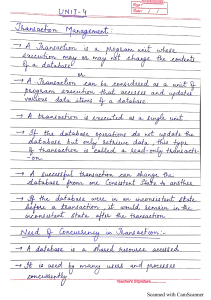 UNIT-4
Transaction Management:-
→ A Transaction is a program unit whose
execution may or may not change the contents
of a database
or
→ A Transaction can be considered as a unit of
program execution that accesses and updates
various data items of a database
→ A transaction is executed as a single unit
→ If the database operations do not update the
database but only retrieve data, this type
of transaction is called a read-only transacti-
-on
→ A successful transaction can change the
database from one Consistent State to another
→ If the database were in an inconsistent state
before a transaction, it would remain in the
inconsistent state after the transaction
Need of Concurrency in Transaction:-
→ A database is a shared resource accessed
→ It is used by many users and processes
concurrently
Teacher's Signature
Scanned with CamScanner